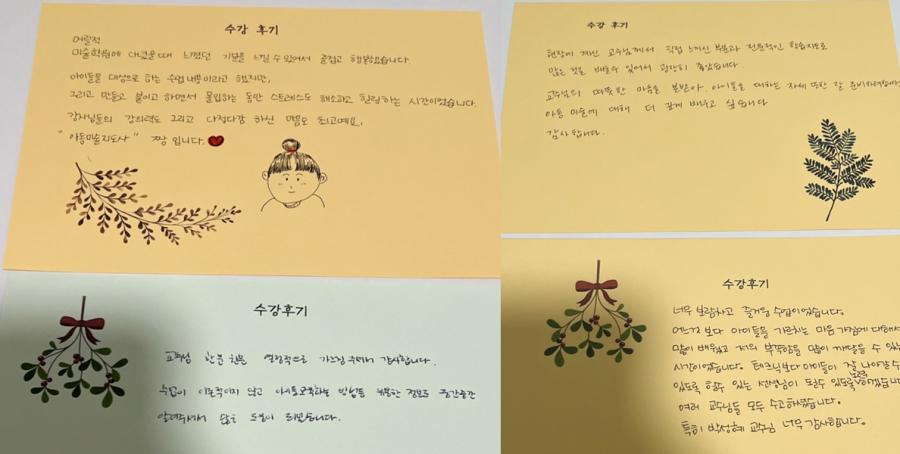 수강 후기
어릴적
미술학원에 다녔을때 느꼈던 기분을 느낄 수 있어서 즐겁고 행복했습니다.
아이들을 대상으로 하는 수업 내용이라고 했지만,
그리고 만들고 붙이고 하면서 몰입하는 동안 스트레스도 해소하고 힐링하는 시간이었습니다.
강사님들의 강의력도 그리고 다정다감 하신 마음도 최고예요.
"아동미술지도사" 짱 입니다.
수강 후기
현장에 계신 교수님께서 직접 느끼신 부분과 전문적인 학습지도로
많은 것을 배울수 있어서 굉장히 좋았습니다.
교수님의 따뜻한 마음을 본받아. 아이들을 대하는 자세 또한 잘
아동 미술에 대해 더 깊게 배우고 싶습니다
감사합니다.
수강후기
교수님 한분 한분 열정적으로 가르침 주셔서 감사합니다
수업이 이론적이지 않고 아이들 교육하는 방법등 정보도 중간중간
알려주셔서 많은 도움이 되었습니다.
수강후기
너무 보람차고 즐거운 수업이었습니다.
어느것 보다 아이들을 가르치는 마음가짐에 대해서
많이 배웠고 저의 부족함을 많이 깨달을 수 있는
시간이었습니다. 테크닉보다 아이들이 잘 나아갈수
있도록 할수 있는 선생님이 될수 있도록 노력
여러 교수님들 모두 수고하셨습니다.
특히 박성혜 교수님 너무 감사합니다.